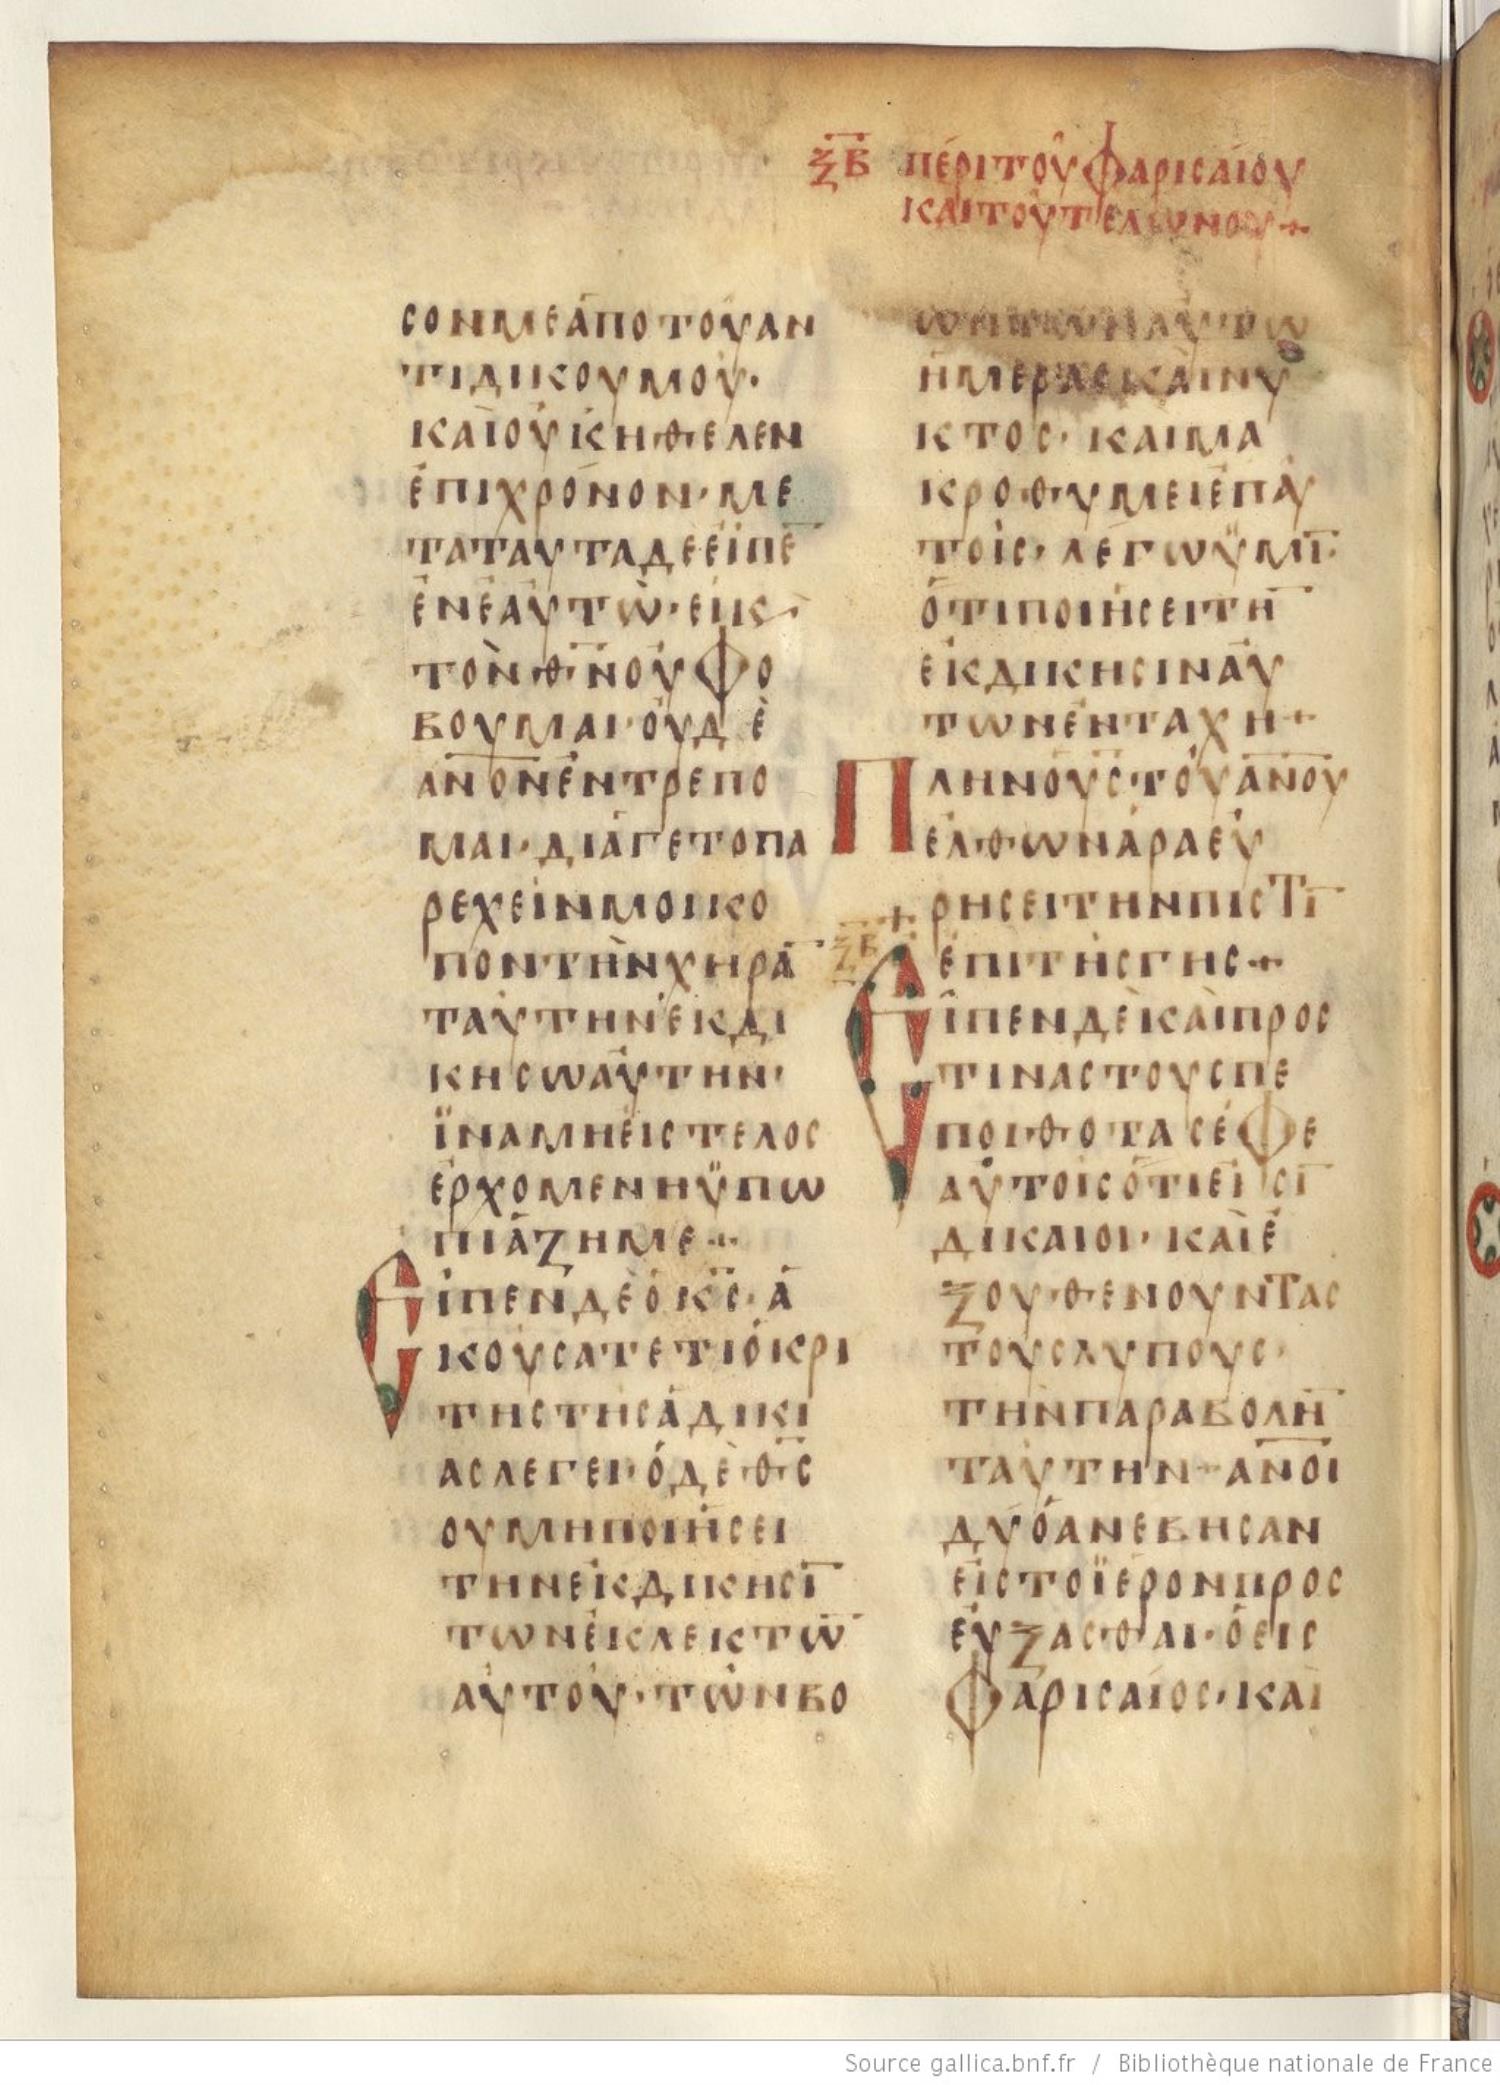 ξ̅β̅ περὶ τοῦ φαρισαίου
καὶ τοῦ τελώνου+
σον με ἀπο τοῦ ἀν
τιδίκου μου·
καὶ οὐκ ἠθελεν
ἐπι χρόνον· με
τα ταυτα δὲ εἶπε̅
ἐν ἑαυτῶ· εἰ κ̣
τὸν θ̅ν̅ οὐ φο
βουμαι· οὐδὲ
α̅ν̅ο̅ν̅ ἐντρεπο
μαι· διά γε το πα
ρεχειν μοι κο
πον τὴν χηρα̅
ταύτην ἐκδι
κησω αὐτην·
ἵνα μη εἰς τελος
ἐρχομενη ὑπω
πιάζη με+
Εἶπεν δὲ ὁ κ̅ς̅· ἀ
κούσατε τι ὁ κρι
της της ἀδικι
ας λεγει· ὁ δὲ θ̅ς̅
ου μη ποιήσει
την ἐκδικησι̅
των ἐκλεκτω̅
αὐτοῦ· τῶν βο
ἡμερας καὶ νυ
κτος· και μα
κροθυμει ἐπ αὐ
τοῖς· λέγω ὑμι̅·
ὁτι ποιήσει τη̅
ἐκδικησιν αὐ
των ἐν ταχη+
Πλην ὁ ὑ̅ς̅ τοῦ α̅ν̅ο̅υ̅
ἐλθων ἀρα εὑ
ρησει την πιστι̅
ἐπι τῆς γης+
ξ̅β̅
Εἶπεν δὲ καὶ προς
τινας τους πε
ποιθοτας ἐφ ἑ
αὐτοις ὁτι εἰσι̅
δικαιοι· καὶ ἐ
ξουθενουντας
τους λυπους·
τὴν παραβολη̅
ταύτην+ α̅ν̅ο̅ι̅
δύο ἀνεβησαν
εἰς το ἱερον προς
εὐξασθαι· ὁ εις
φαρισαίος· καὶ
Source gallica.bnf.fr / Bibliothèque nationale de France